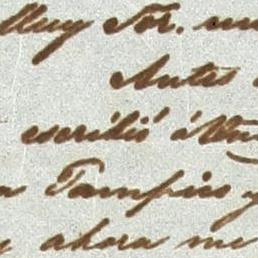 Muy Sor.
Antes
escribió á
Tampico y
y ahora me